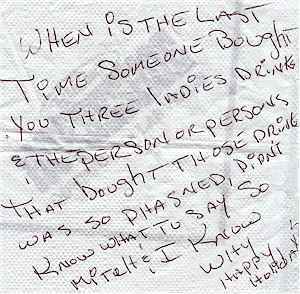 WHEN iS THE LAST
TiME SOMEONE BOUGHT
YOU THREE LADIES DRINKS
& THE PERSON OR PERSONS
THAT BOUGHT THOSE DRINK
WAS SO PHASNED, DIDNT
KNOW WHAT TO SAY SO
MiTCH & I KNOW
WHY
HAPPY
HOLIDAY